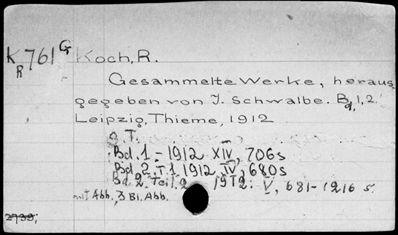 K 761 G Koch, R.
R
Gesammelte Werke, heraus
gegeben von J. Schwalbe. Bd 1, 2.
Leipzig, Thieme, 1912
2 T.
Bd. 1 - 1912 XIV, 706s
Bd. 2. T. 1 1912 IV, 680s
Bd. 2. Teil. 2 1912. V, 681-1216 s.
mit Abb. 3 Bl. Abb.
2739,